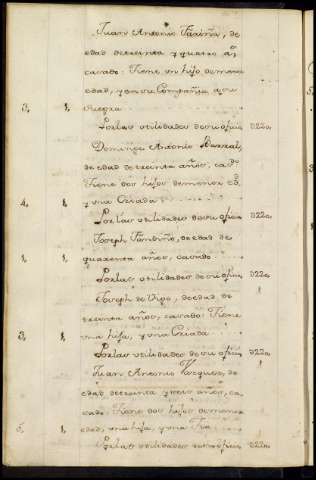 Juan Antonio Fariña, de
edad de treinta y quatro añs
casado: tiene, un hijo de menor
edad, y en su Compañia a su
3, 1, Suegra
Por las utilidades de su oficio D220
Domingo Antonio Barral,
de edad de treinta años, casdo
tiene dos hijos de menor ed.
4, 1, y una Criada
Por las utilidades de su oficio D220
Joseph Fandiño, de edad de
1, 1, quarenta años, casado
Por las utilidades de su oficio D220
Joseph de Vigo, de edad de
treinta años, casado: tiene
3, 1, una hija, y una Criada
Por las utilidades de su oficio D220
Juan Antonio Vazquez, de
edad de treinta y seis años, ca-
sado: tiene dos hijos de menor
5, 1, edad, una hija, y una Tia
Por las utilidades de su oficio D220